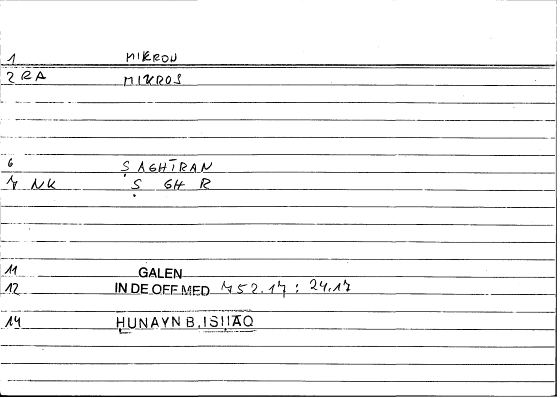 1 MIKRON
2 RA MIKROS
6 ṢAGHĪRAN
7 NK Ṣ GH R
11 GALEN
12 IN DE OFF MED 752.17 : 24.17
14 ḤUNAYN B. ISḤĀQ